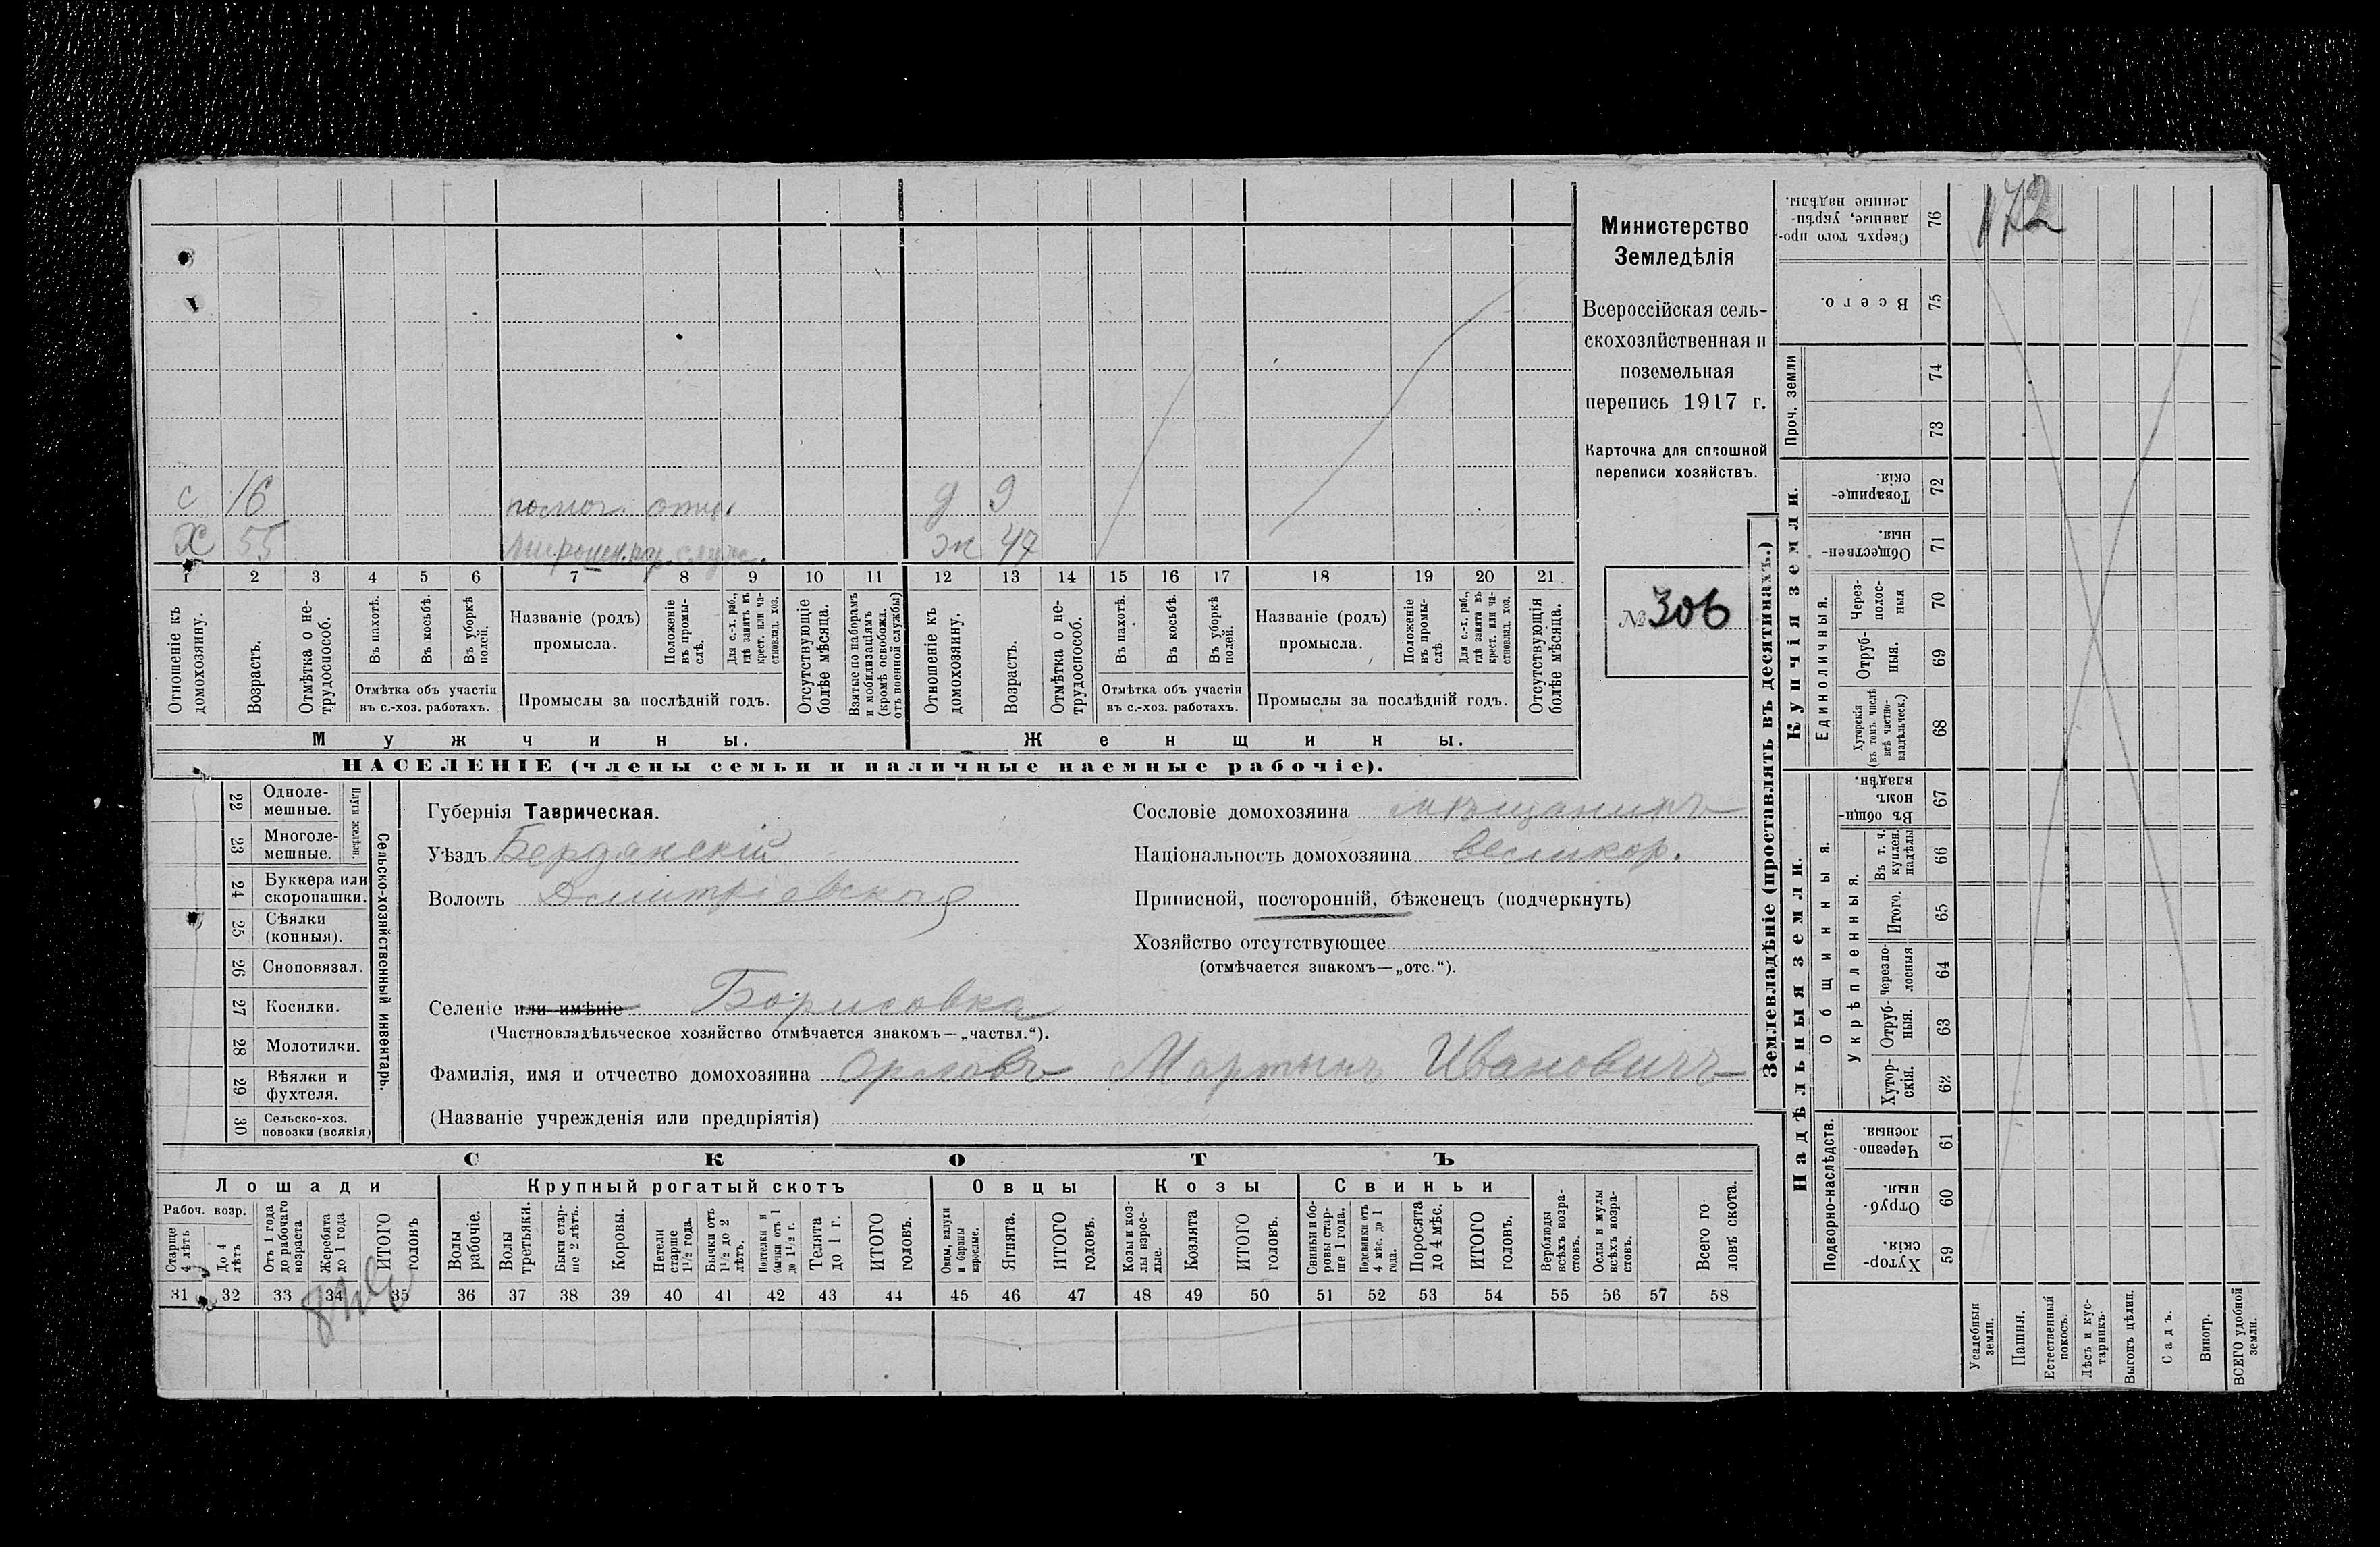 172
Министерство
Земледѣлія
Всероссійская сель-
скохозяйственная и
поземельная
перепись 1917 г.
Карточка для сплошной
переписи хозяйствъ.
№ 306
с 16 помог. отцу. д 9
Х 55 ж 47
1 2 3 4 5 6 7 8 9 10 11 12 13 14 15 16 17 18 19 20 21
Отношеніе къ домохозяину.
Возрастъ.
Отмѣтка о не-трудоспособ.
Въ пахотѣ.
Въ косьбѣ.
Въ уборкѣ полей.
Отмѣтка объ участіи
въ с.-хоз. работахъ.
Названіе (родъ)
промысла.
Положеніе въ промы-слѣ.
Для с.-х. раб., гдѣ занятъ въ крест. или ча-стновлад. хоз.
Промыслы за послѣдній годъ.
Отсутствующіе болѣе мѣсяца.
Взятые по наборамъ и мобилизаціямъ (кромѣ освобожд. отъ военной службы)
Отношеніе къ домохозяину.
Возрастъ.
Отмѣтка о не-трудоспособ.
Въ пахотѣ.
Въ косьбѣ.
Въ уборкѣ полей.
Отмѣтка объ участіи
въ с.-хоз. работахъ.
Названіе (родъ)
промысла.
Положеніе въ промы-слѣ
Для с.-х. раб., гдѣ занята въ крест. или ча-стновлад. хоз.
Промыслы за послѣдній годъ.
Отсутствующія болѣе мѣсяца.
Мужчины.
Женщины.
НАСЕЛЕНІЕ (члены семьи и наличные наемные рабочіе).
22 Одноле-мешные.
23 Многоле-мешные.
Плуги желѣзн.
24 Буккера или скоропашки.
25 Сѣялки (конныя).
26 Сноповязал.
27 Косилки.
28 Молотилки.
29 Вѣялки и фухтеля.
30 Сельско-хоз. повозки (всякія)
Сельско-хозяйственный инвентарь.
Губернія Таврическая.
Уѣздъ Бердянскій
Волость Дмитріевская
Селеніе или имѣніе Борисовка
(Частновладѣльческое хозяйство отмѣчается знакомъ—„частвл.“).
Фамилія, имя и отчество домохозяина Орловъ Мартынъ Ивановичъ
(Названіе учрежденія или предпріятія)
Сословіе домохозяина мѣщанинъ
Національность домохозяина великор.
Приписной, посторонній, бѣженецъ (подчеркнуть)
Хозяйство отсутствующее
(отмѣчается знакомъ—„отс.“).
СКОТЪ
Лошади
Крупный рогатый скотъ
Овцы
Козы
Свиньи
Рабоч. возр.
Старше 4 лѣтъ
До 4 лѣтъ
Отъ 1 года до рабочаго возраста
Жеребята до 1 года
ИТОГО головъ
Волы рабочіе.
Волы третьяки.
Быки стар-ше 2 лѣтъ.
Коровы.
Нетели старше 1½ года.
Бычки отъ 1½ до 2 лѣтъ.
Подтелки и бычки отъ 1 до 1½ г.
Телята до 1 г.
ИТОГО головъ.
Овцы, валухи и бараны взрослые.
Ягнята.
ИТОГО головъ.
Козы и коз-лы взрос-лые.
Козлята
ИТОГО головъ.
Свиньи и бо-ровы стар-ше 1 года.
Подсвинки отъ 4 мѣс. до 1 года.
Поросята до 4 мѣс.
ИТОГО головъ.
Верблюды всѣхъ возра-стовъ.
Ослы и мулы всѣхъ возра-стовъ.
Всего го-ловъ скота.
31 32 33 34 35 36 37 38 39 40 41 42 43 44 45 46 47 48 49 50 51 52 53 54 55 56 57 58
Землевладѣніе (проставлять въ десятинахъ.)
Купчія земли.
Надѣльныя земли.
Сверхъ того про-данные, укрѣп-ленные надѣлы. 76
Всего. 75
Проч. земли 74
73
Товарище-скія. 72
Обществен-ныя. 71
Единоличныя.
Через-полос-ныя 70
Отруб-ныя. 69
Хуторскія (въ томъ числѣ всѣ частно-владѣльческ.) 68
Общинныя.
Въ общин-номъ владѣн. 67
Укрѣпленныя.
Въ т. ч. куплен. надѣлы 66
Итого. 65
Черезпо-лосныя 64
Отруб-ныя. 63
Хутор-скія. 62
Подворно-наслѣдств.
Черезпо-лосныя. 61
Отруб-ныя. 60
Хутор-скія. 59
Усадебныя земли.
Пашня.
Естественный покосъ.
Лѣсъ и кус-тарникъ.
Выгонъ цѣлин.
Садъ.
Виногр.
ВСЕГО удобной земли.